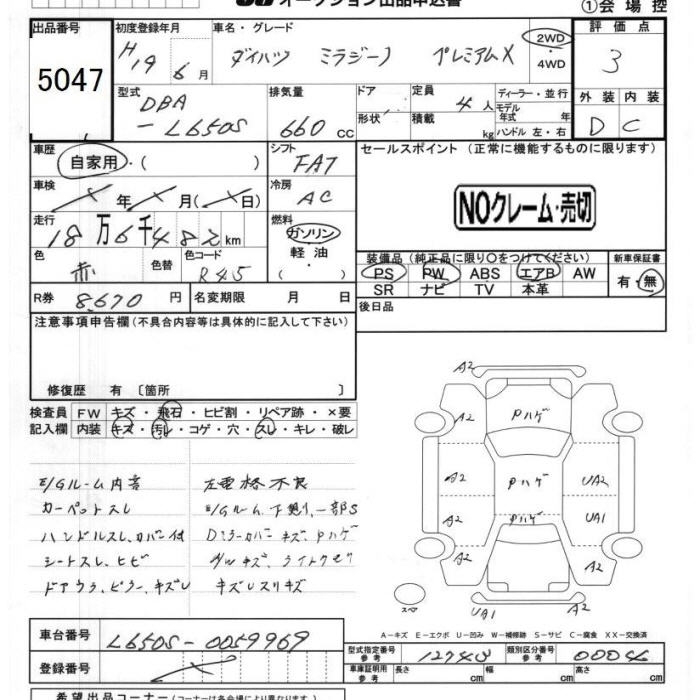 オークション出品申込書
①会場控
出品番号
5047
初度登録年月
H19 6月
車名・グレード
ダイハツ ミラジーノ プレミアムX
2WD
・4WD
評価点
3
外装 内装
D C
型式
DBA
-L650S
排気量
660 cc
ドア
形状
定員
4人
積載
kg
ディーラー・並行
モデル
年式 年
ハンドル 左・右
車歴
自家用・( )
シフト
FAT
車検
年 月( 日)
冷房
AC
走行
18万6千482km
燃料
ガソリン
・
軽油
・
( )
色
赤
色替
色コード
R45
R券 8,670 円
名変期限 月 日
セールスポイント (正常に機能するものに限ります)
NOクレーム・売切
装備品 (純正品に限り○をつけてください)
PS PW ABS エアB AW
SR ナビ TV 本革
新車保証書
有・無
後日品
注意事項申告欄(不具合内容等は具体的に記入して下さい)
修復歴 有〔箇所 〕
検査員
記入欄
FW キズ・飛石・ヒビ割・リペア跡・×要
内装 キズ・汚レ・コゲ・穴・スレ・キレ・破レ
E/Gルーム内音
カーペットスレ
ハンドルスレ、カバー付
シートスレ、ヒビ
ドアウラ、ピラー、キズレ
左電格不良
E/Gルーム、下廻り、一部S
Dミラーカバーキズ、Pハゲ
キズレスリキズ
A2
A2
Pハゲ
A2
Pハゲ
UA2
A2
Pハゲ
UA1
A2
A2
スペア
UA1
A2
A-キズ E-エクボ U-凹み W-補修跡 S-サビ C-腐食 XX-交換済
車台番号
L650S-0059969
登録番号
型式指定番号
参考
類別区分番号
参考
車庫証明用
参考
長さ cm
幅 cm
高さ cm
希望出品コーナー(コーナーは各会場により異なります。)